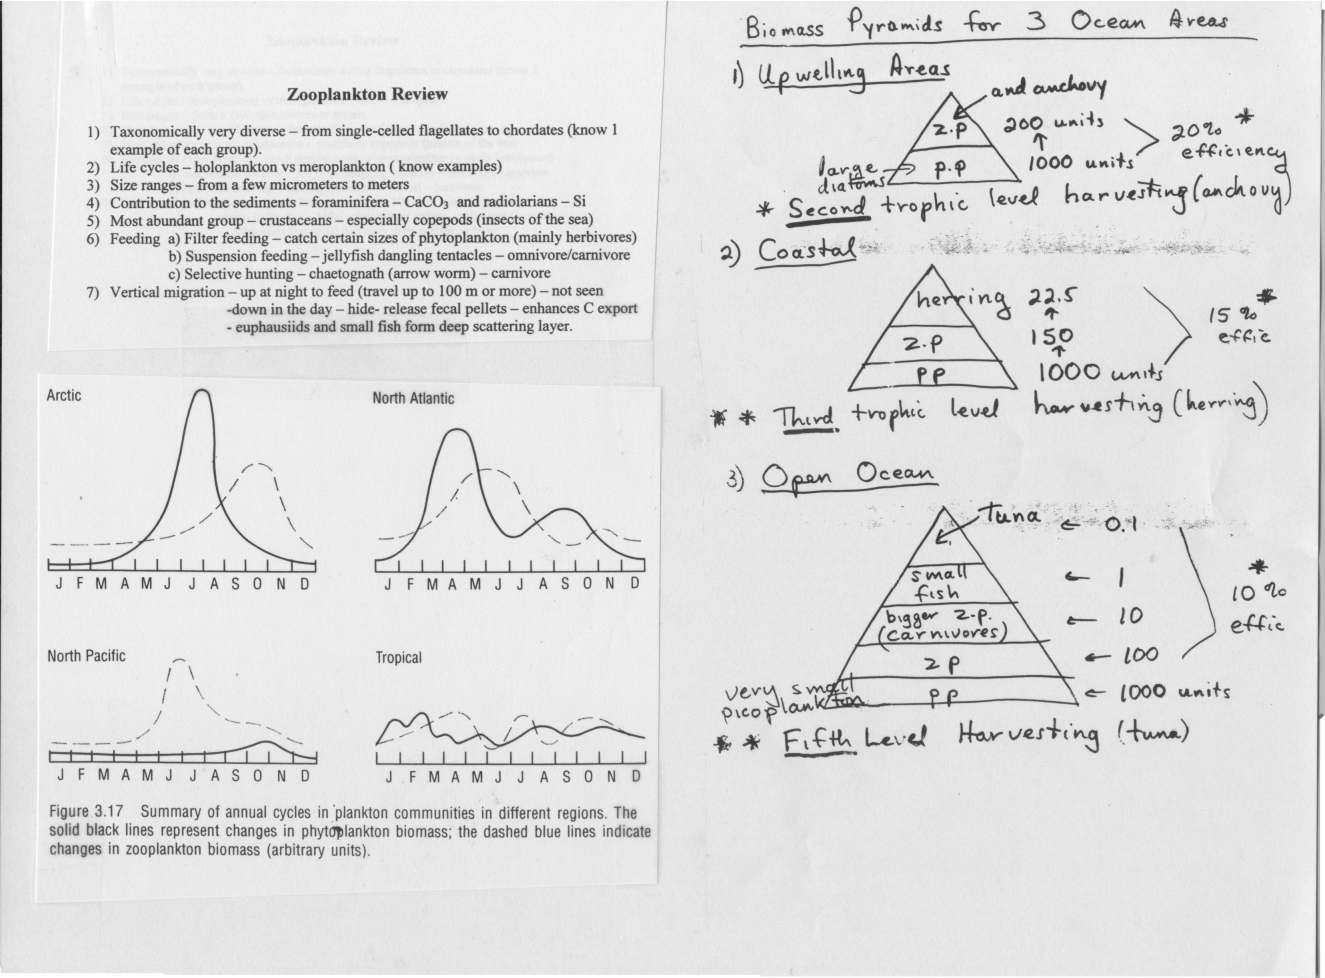 Zooplankton Review
1) Taxonomically very diverse – from single-celled flagellates to chordates (know 1
example of each group).
2) Life cycles – holoplankton vs meroplankton ( know examples)
3) Size ranges – from a few micrometers to meters
4) Contribution to the sediments – foraminifera – CaCO₃ and radiolarians – Si
5) Most abundant group – crustaceans – especially copepods (insects of the sea)
6) Feeding a) Filter feeding – catch certain sizes of phytoplankton (mainly herbivores)
b) Suspension feeding – jellyfish dangling tentacles – omnivore/carnivore
c) Selective hunting – chaetognath (arrow worm) – carnivore
7) Vertical migration – up at night to feed (travel up to 100 m or more) – not seen
-down in the day – hide- release fecal pellets – enhances C export
- euphausiids and small fish form deep scattering layer.
Arctic
J F M A M J J A S O N D
North Atlantic
J F M A M J J A S O N D
North Pacific
J F M A M J J A S O N D
Tropical
J F M A M J J A S O N D
Figure 3.17 Summary of annual cycles in plankton communities in different regions. The
solid black lines represent changes in phytoplankton biomass; the dashed blue lines indicate
changes in zooplankton biomass (arbitrary units).
Biomass Pyramids for 3 Ocean Areas
1) Upwelling Areas
and anchovy
z.p 200 units
20% *
efficiency
large
diatoms
p.p 1000 units
* Second trophic level harvesting (anchovy)
2) Coastal
herring 22.5
15% *
effic
z.p 150
PP 1000 units
* * Third trophic level harvesting (herring)
3) Open Ocean
tuna ← 0.1
small
fish
← 1
*
10%
effic
bigger z.p.
(carnivores)
← 10
zp ← 100
very small
picoplankton
PP ← 1000 units
* * Fifth Level Harvesting (tuna)